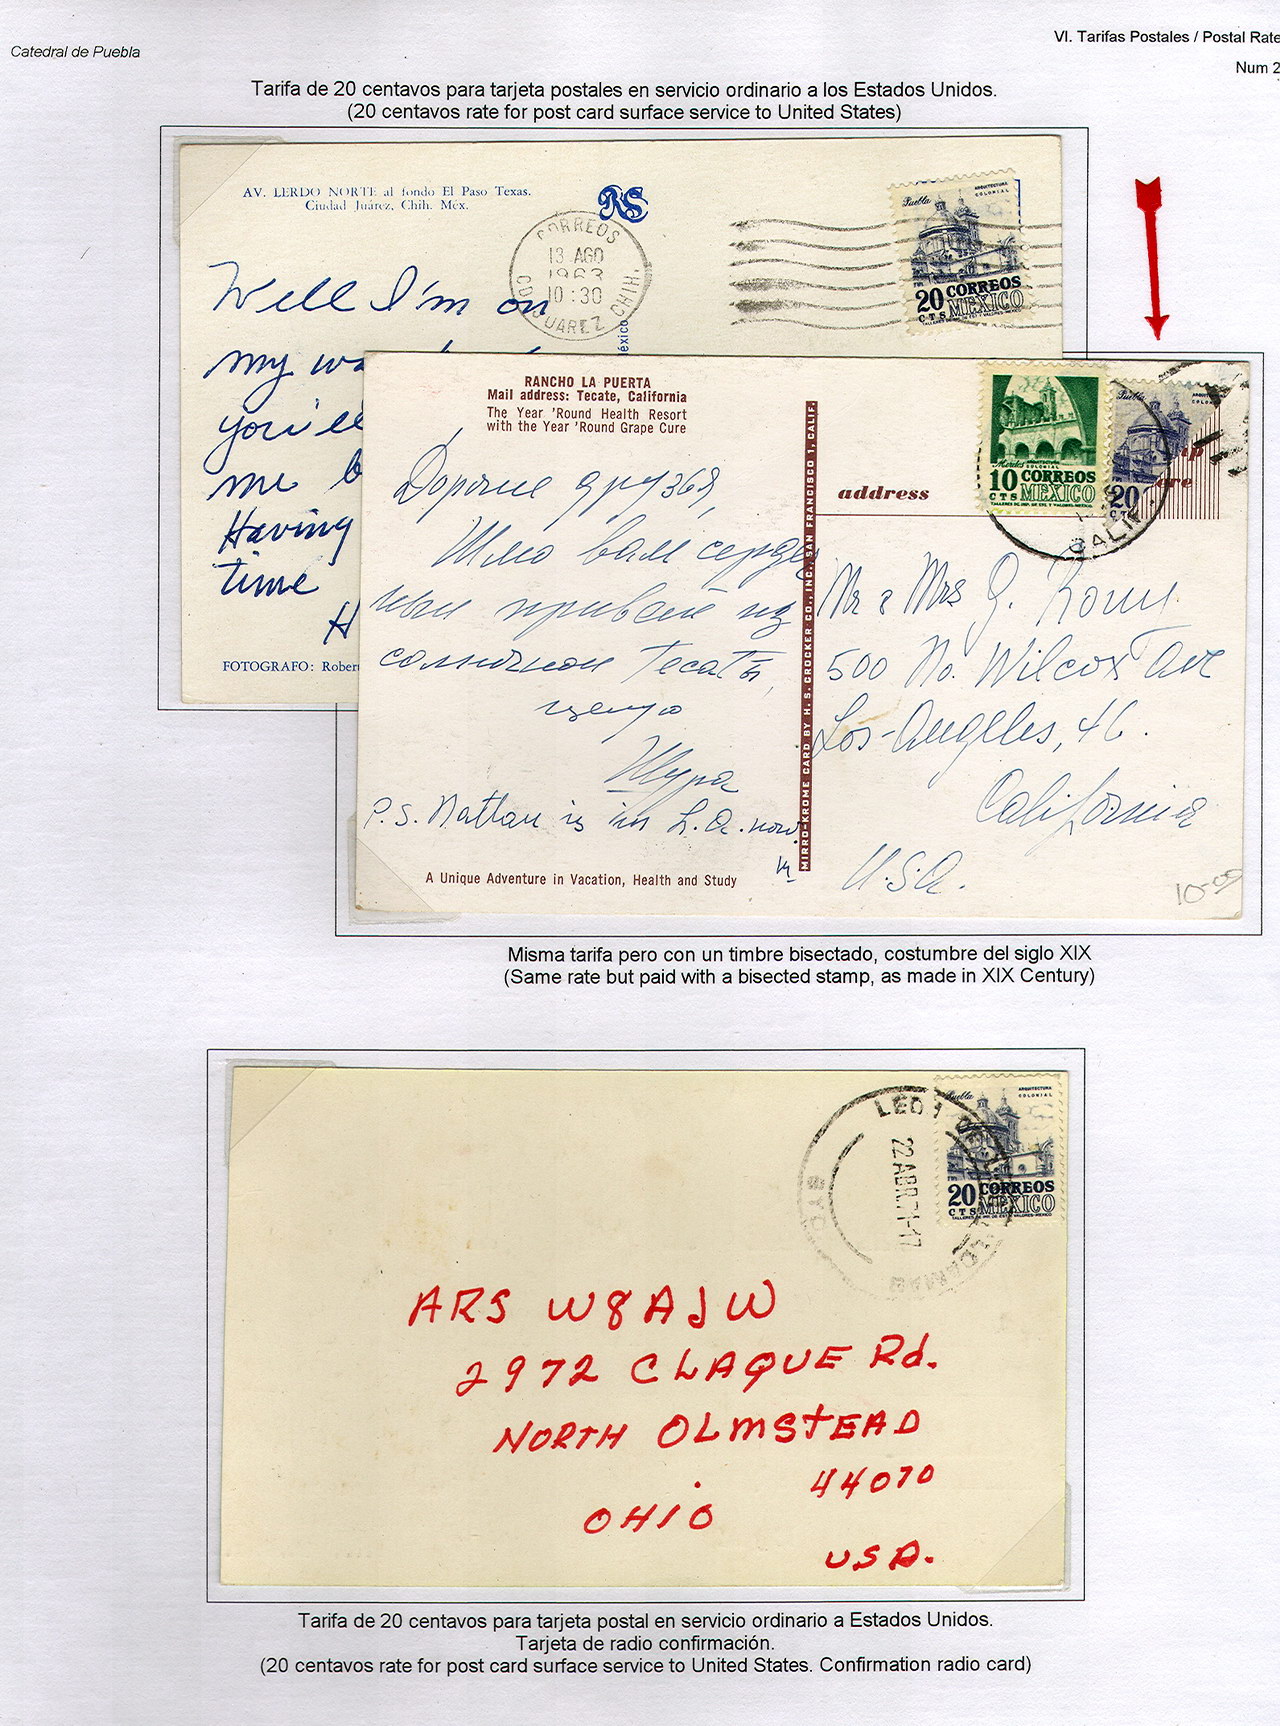 Catedral de Puebla
VI. Tarifas Postales / Postal Rate
Num 2
Tarifa de 20 centavos para tarjeta postales en servicio ordinario a los Estados Unidos.
(20 centavos rate for post card surface service to United States)
AV. LERDO NORTE al fondo El Paso Texas.
Ciudad Juárez, Chih. Méx.
RS
CORREOS
13 AGO
1963
10:30
CD. JUAREZ CHIH.
Puebla
ARQUITECTURA
COLONIAL
20 CORREOS
CTS MEXICO
Well I'm on
my
you'll
me
Having
time
H
éxico
FOTOGRAFO: Rober
RANCHO LA PUERTA
Mail address: Tecate, California
The Year 'Round Health Resort
with the Year 'Round Grape Cure
MIRRO-KROME CARD BY H. S. CROCKER CO., INC., SAN FRANCISCO 1, CALIF.
address
Morelos ARQUITECTURA
COLONIAL
10 CORREOS
CTS MEXICO
Puebla
20
CT
CALIF.
Дорогие друзья,
Шлю вам сердеч
ный привет из
солнечной Tecatы,
целую
Шура
P.S. Nathan is in L.A. now.
Mr & Mrs G.
500 No. Wilcox Ave
Los-Angeles, 46.
California
U.S.A.
10.00
A Unique Adventure in Vacation, Health and Study
Misma tarifa pero con un timbre bisectado, costumbre del siglo XIX
(Same rate but paid with a bisected stamp, as made in XIX Century)
22 ABR. 71-17
Puebla
ARQUITECTURA
COLONIAL
20 CORREOS
CTS MEXICO
ARS W8AJW
2972 CLAQUE Rd.
NORTH OLMSTEAD
44070
OHIO
USA.
Tarifa de 20 centavos para tarjeta postal en servicio ordinario a Estados Unidos.
Tarjeta de radio confirmación.
(20 centavos rate for post card surface service to United States. Confirmation radio card)